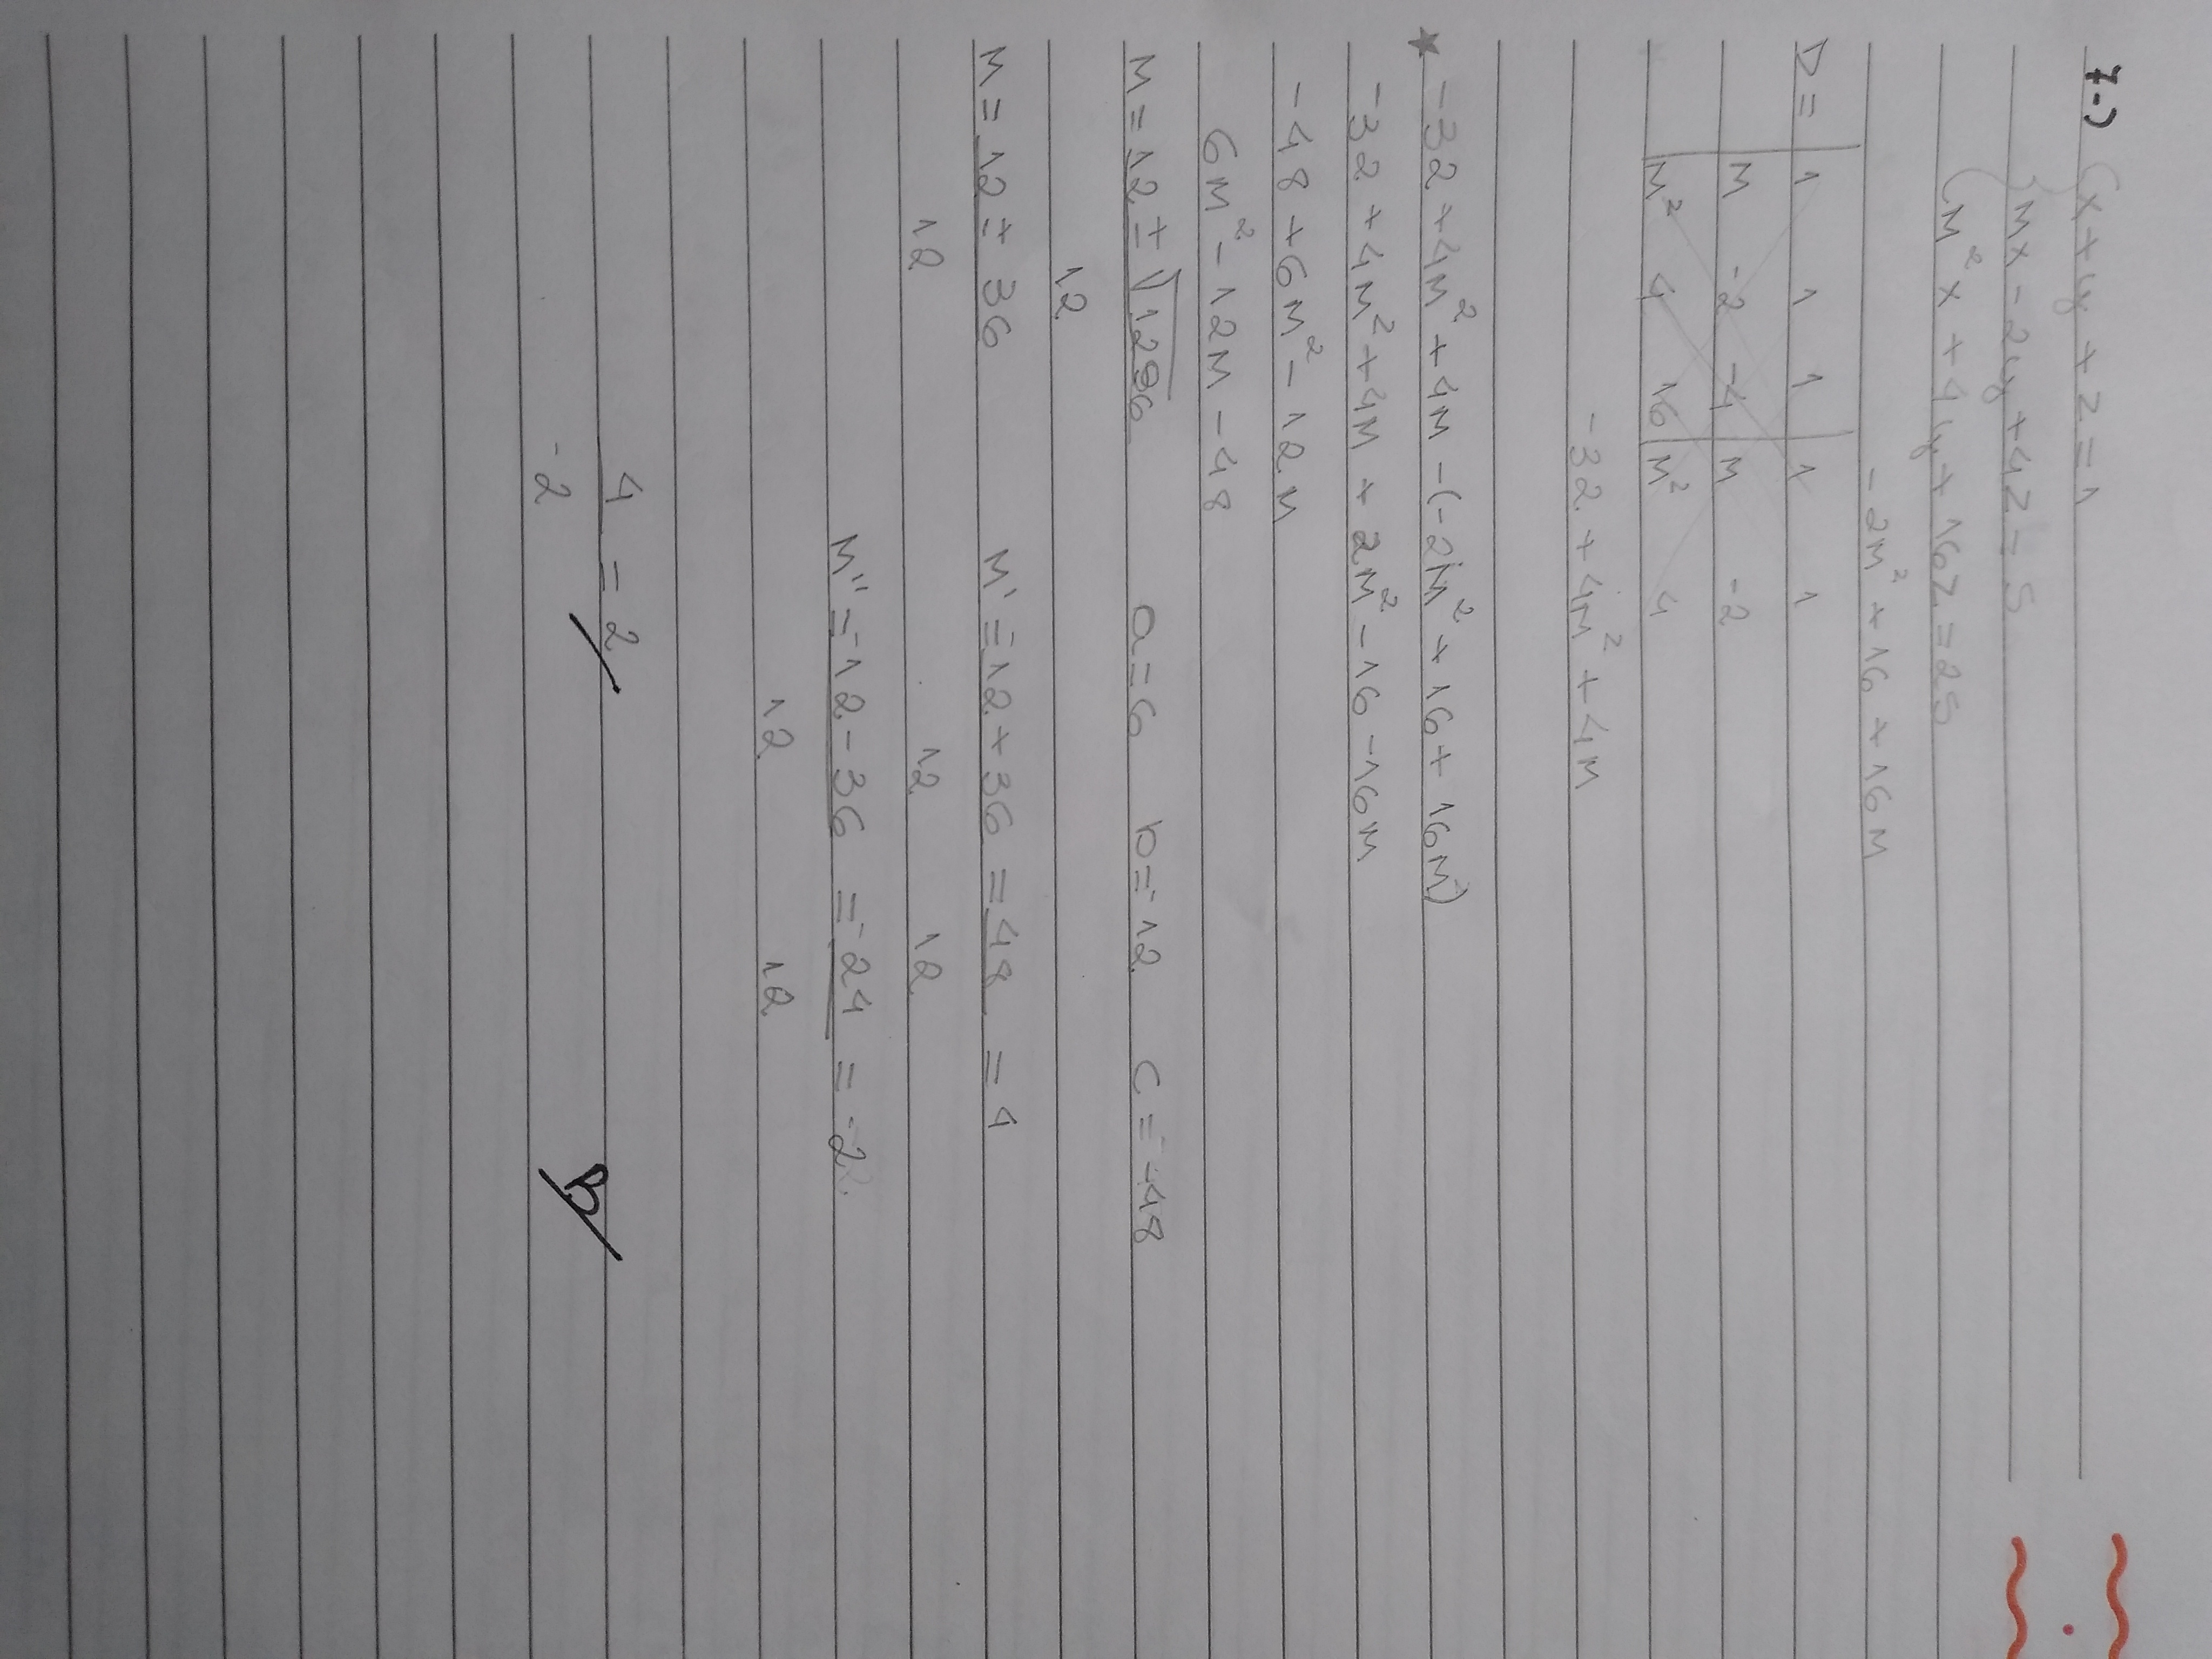 7-) { x + y + z = 1
mx - 2y + 4z = 5
m² x + 4y + 16z = 25
- 2m² + 16 + 16m
D = | 1 1 1 | 1 1
m -2 -4 | m -2
m² 4 16 | m² 4
-32 + 4m² + 4m
★ -32 + 4m² + 4m - (-2m² + 16 + 16m)
-32 + 4m² + 4m + 2m² - 16 - 16m
-48 + 6m² - 12m
6m² - 12m - 48
m = 12 ± √1296 a = 6 b = -12 c = -48
12
m = 12 ± 36 m' = 12 + 36 = 48 = 4
12 12 12
m'' = 12 - 36 = -24 = -2
12 12
4 = 2 B
-2